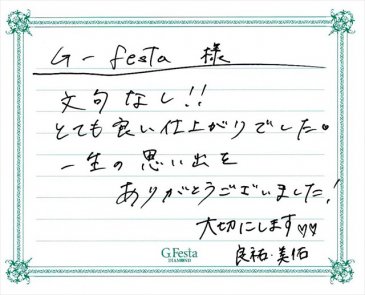 G-festa 様
文句なし!!
とても良い仕上がりでした。
一生の思い出を
ありがとうございました!
大切にします♡♡
良祐・美佑
G.Festa
DIAMOND